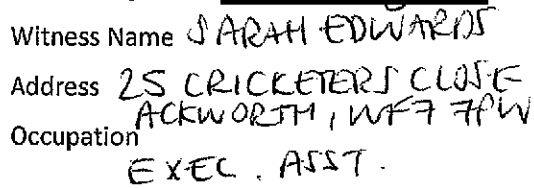 Witness Name SARAH EDWARDS
Address 25 CRICKETERS CLOSE
ACKWORTH, WF7 7PW
Occupation
EXEC. ASST.